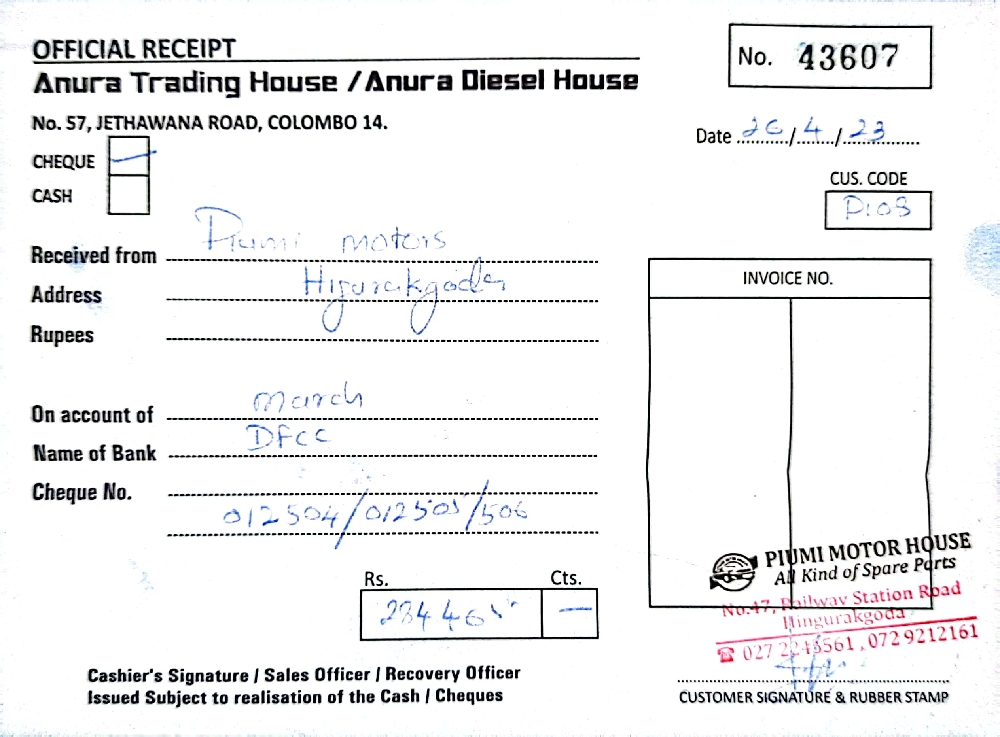 OFFICIAL RECEIPT
Anura Trading House / Anura Diesel House
No. 57, JETHAWANA ROAD, COLOMBO 14.
No. 43607
Date 26/4/23
CHEQUE
CASH
CUS. CODE
P108
Received from Piumi motors
Address Higurakgoda
Rupees
INVOICE NO.
On account of March
Name of Bank DFCC
Cheque No.
012504/012505/506
Rs. Cts.
PIUMI MOTOR HOUSE
All Kind of Spare Parts
No.47, Railway Station Road
Hingurakgoda
027 2246561, 072 9212161
Cashier's Signature / Sales Officer / Recovery Officer
Issued Subject to realisation of the Cash / Cheques
CUSTOMER SIGNATURE & RUBBER STAMP